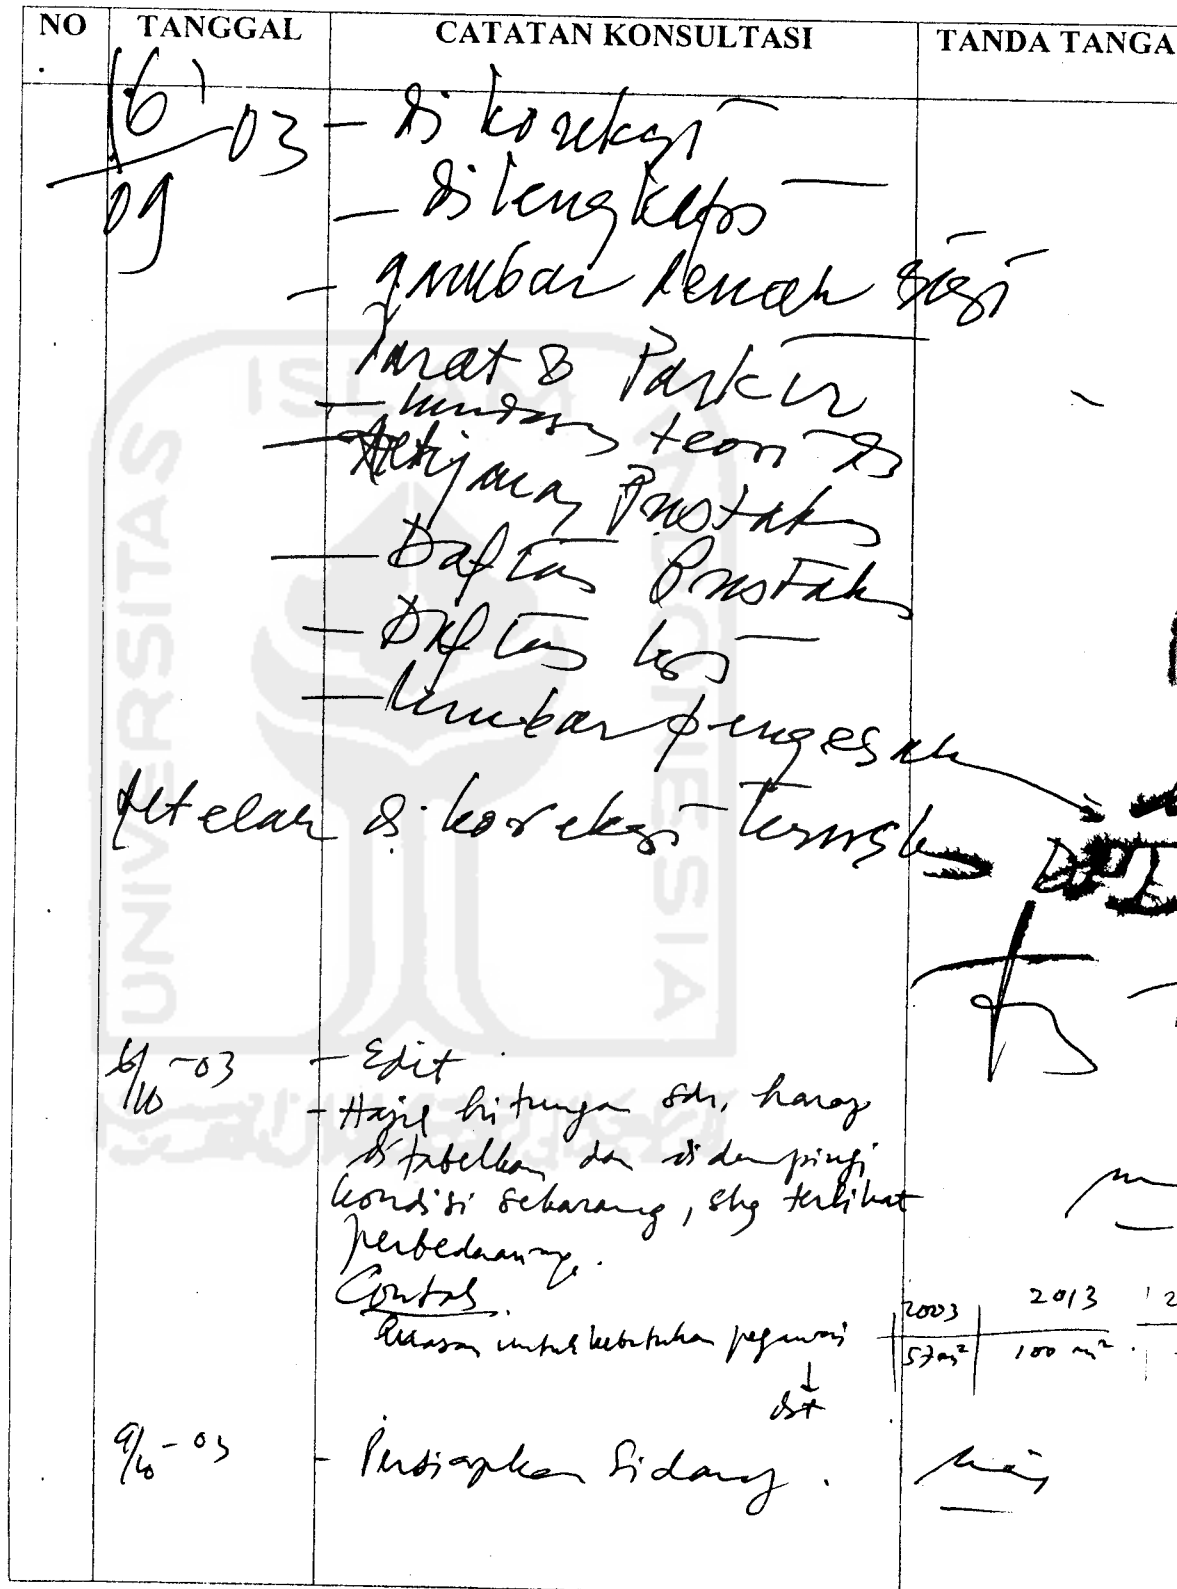 NO TANGGAL CATATAN KONSULTASI TANDA TANGA
16/09 03 - dikoreksi
- dilengkapi
- gambar denah sisi
darat & Parkir
- landasan teori &
- Tinjauan Pustaka
- Daftar Pustaka
- Daftar Isi
- lembar pengesahan
setelah dikoreksi
6/10-03 - Edit.
- Hasil hitungan sdr, harap
ditabelkan dan didampingi
kondisi sekarang, shg terlihat
perbedaannya.
Contoh.
Luasan untuk kebutuhan pegawai 2003 2013 2
57 m² 100 m²
dst
9/10-03 - Persiapkan Sidang.
UNIVERSITAS ISLAM INDONESIA